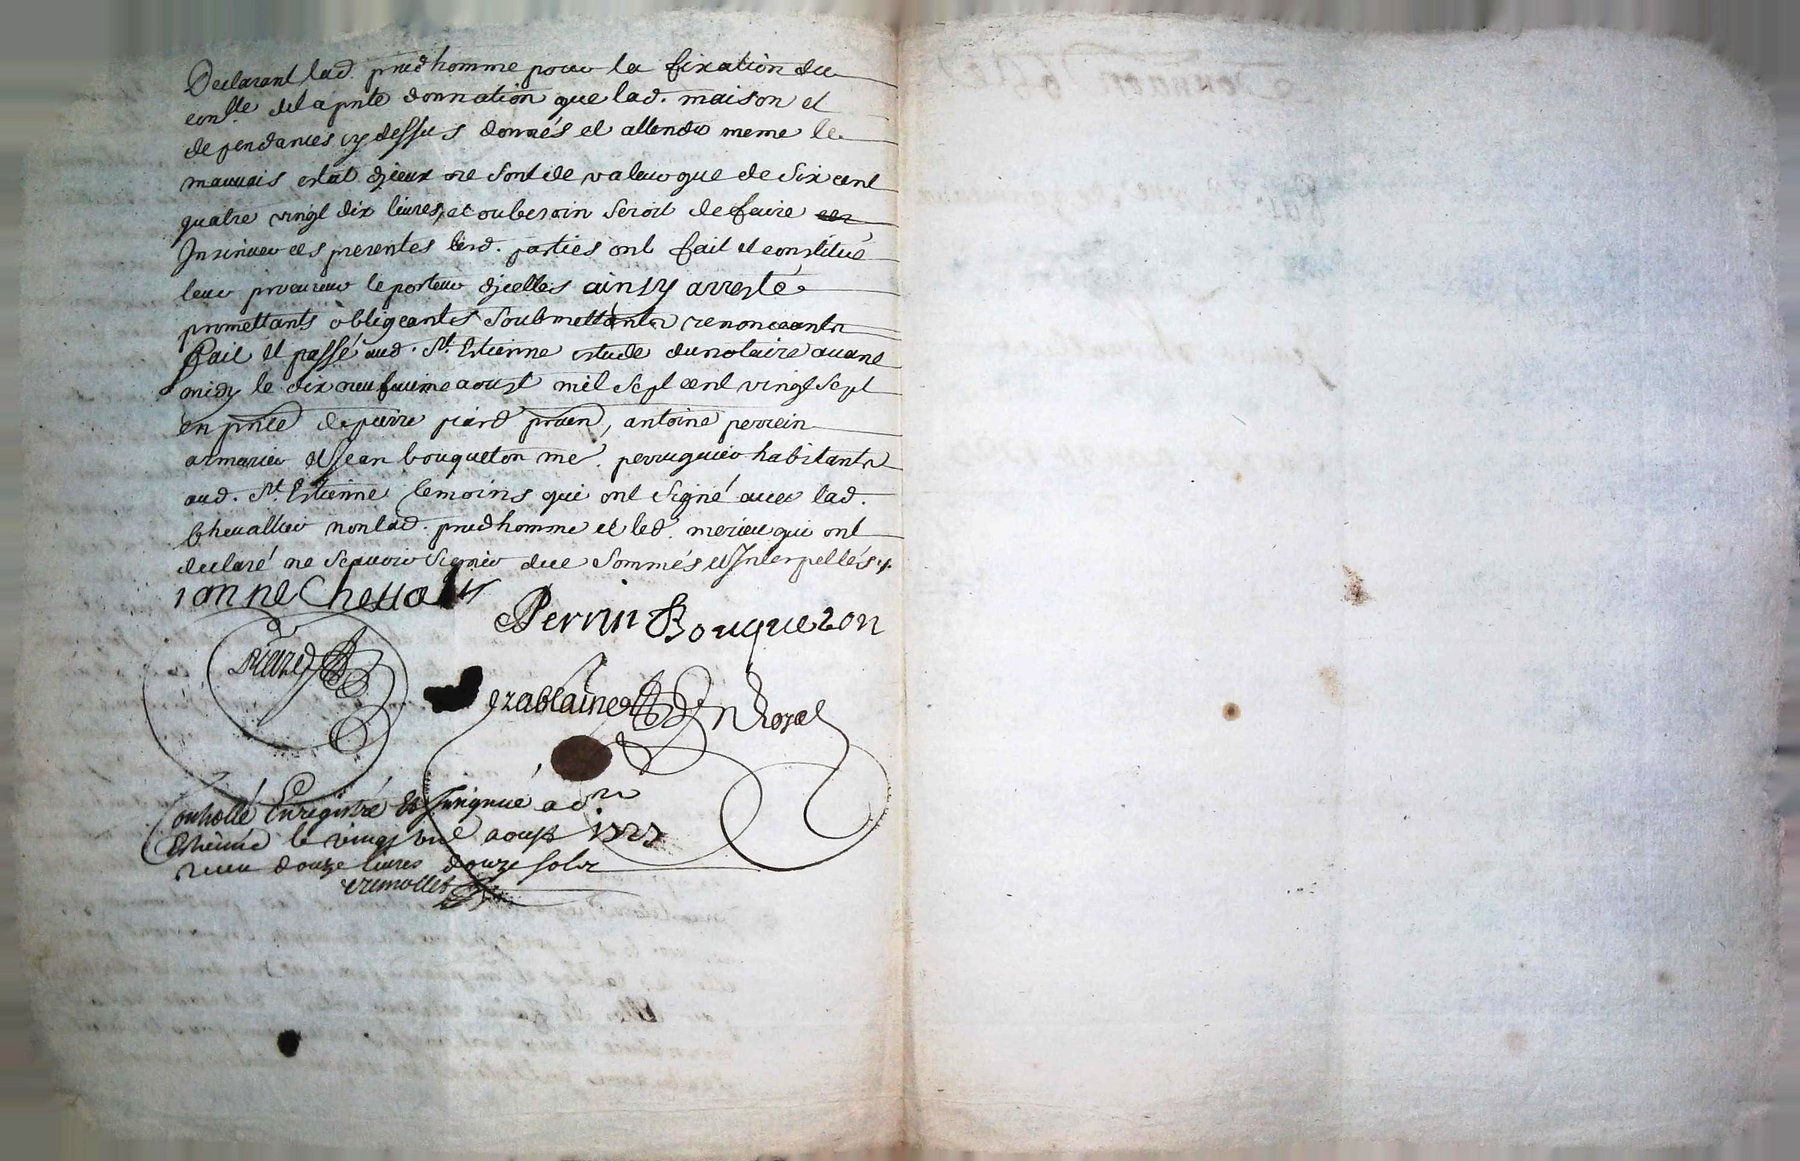 Declarant lad. prudhomme pour la fixation du
conlle de la pnte donnation que lad. maison et
dependances cy dessus donnés et attendu meme le
mauvais estat d'jceux ne sont de valeur que de six cent
quatre vingt dix livres, et ou besoin seroit de faire
Insinuer ces presentes lesd. parties ont fait et constitué
leur procureur le porteur d'jcelles ainsy arresté
promettants obligeants soubmettants renonceants
fait et passé aud. St. Estienne estude du notaire avant
midy le dix neufvieme aoust mil sept cent vingt sept
en pnce de pierre picard praen, antoine perrein
armurier et Jean bouqueton me. perruquier habitants
aud. St. Estienne temoins qui ont signé avec lad.
Chevallier non lad. prudhomme et led. merieu qui ont
declaré ne scavoir signer due sommés et Interpellés
Perrin Bouqueton
Picard
n Royal
Controllé Enregistré et Insignué a St
Estienne le vingt un aoust 1727
receu douze livres douze sols